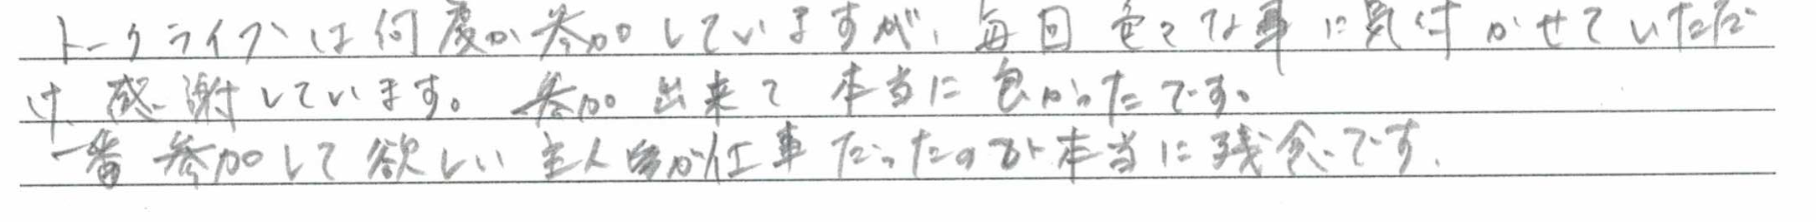 トークライブは何度か参加していますが、毎回色々な事に気付かせていただ
け、感謝しています。参加出来て本当に良かったです。
一番参加して欲しい主人が仕事だったのが本当に残念です。